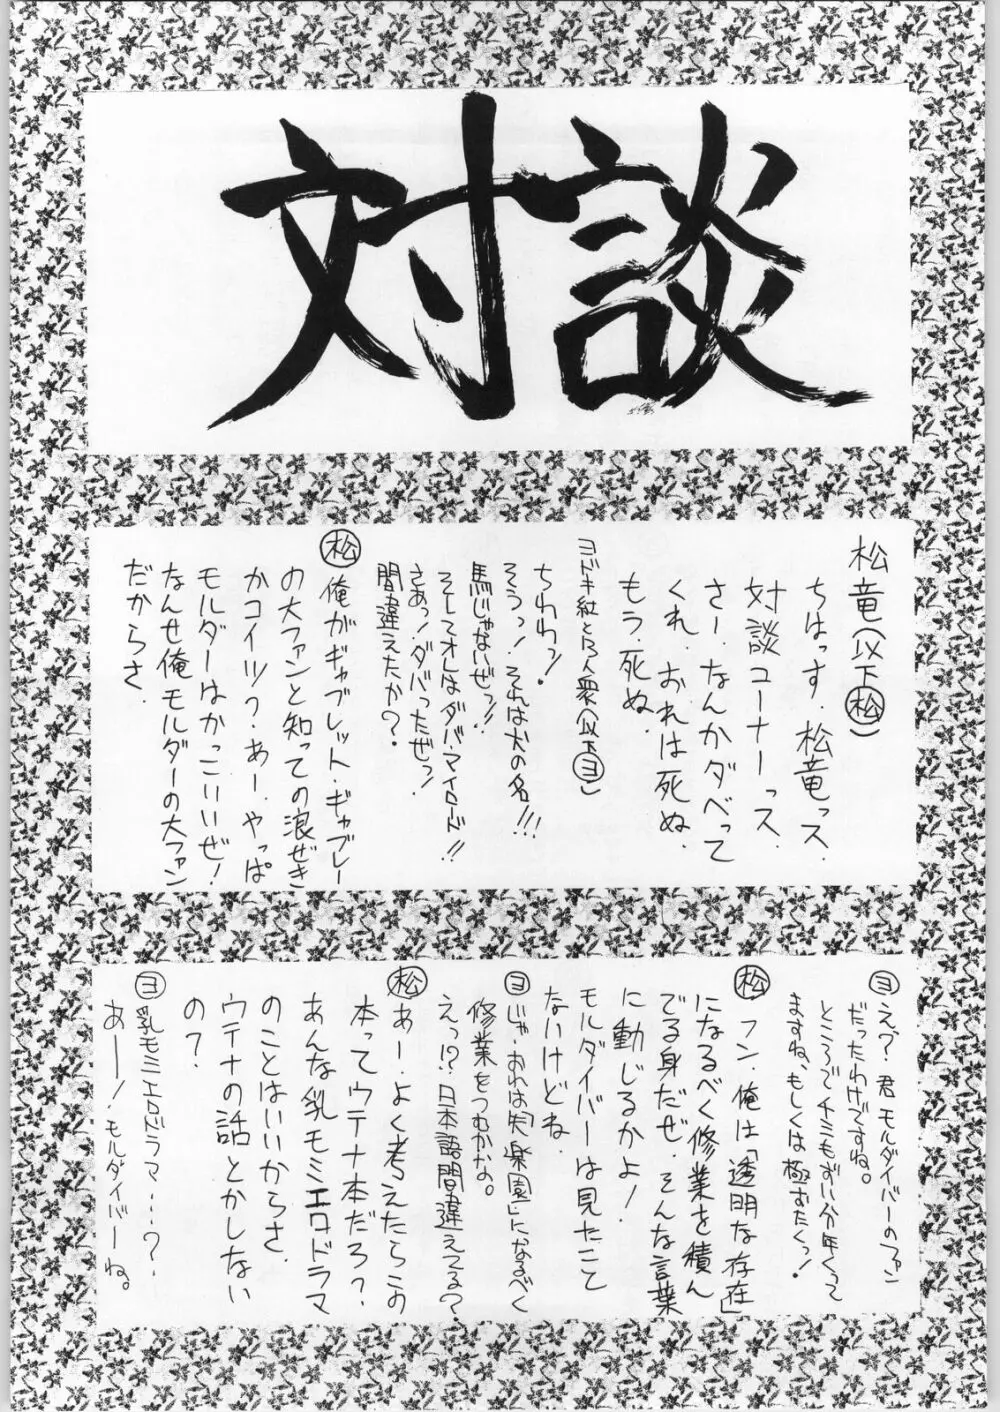 対談
松竜(以下松)
ちはっす、松竜っス、
対談コーナーっス、
さー、なんかダベって
くれ、おれは死ぬ、
もう、死ぬ、
ヨドキ紅と13人衆(以下ヨ)
ちわわっ!
そうっ!それは犬の名!!!
馬じゃないぜっ!!
そしてオレはダバ・マイロード!!
さあっ!ダバったぜっ!
間違えたか?
松 俺がギャブレット・ギャブレー
の大ファンと知っての浪ぜき
かコイツ?あー、やっぱ
モルダーはかっこいいぜ!
なんせ俺モルダーの大ファン
だからさ、
ヨ えっ?君モルダイバーのファン
だったわけですね。
ところでチミもずい分年くって
ますね、もしくは極おたくっ!
松 フン、俺は「透明な存在」
になるべく修業を積ん
でる身だぜ、そんな言葉
に動じるかよ!
モルダイバーは見たこと
ないけどね
ヨ じゃ、おれは「失楽園」になるべく
修業をつむかな。
えっ!?日本語間違えてる?
松 あー、よく考えたらこの
本ってウテナ本だろ?
あんな乳モミエロドラマ
のことはいいからさ、
ウテナの話とかしない
の?
ヨ 乳モミエロドラマ…?
あーー!モルダイバーね。